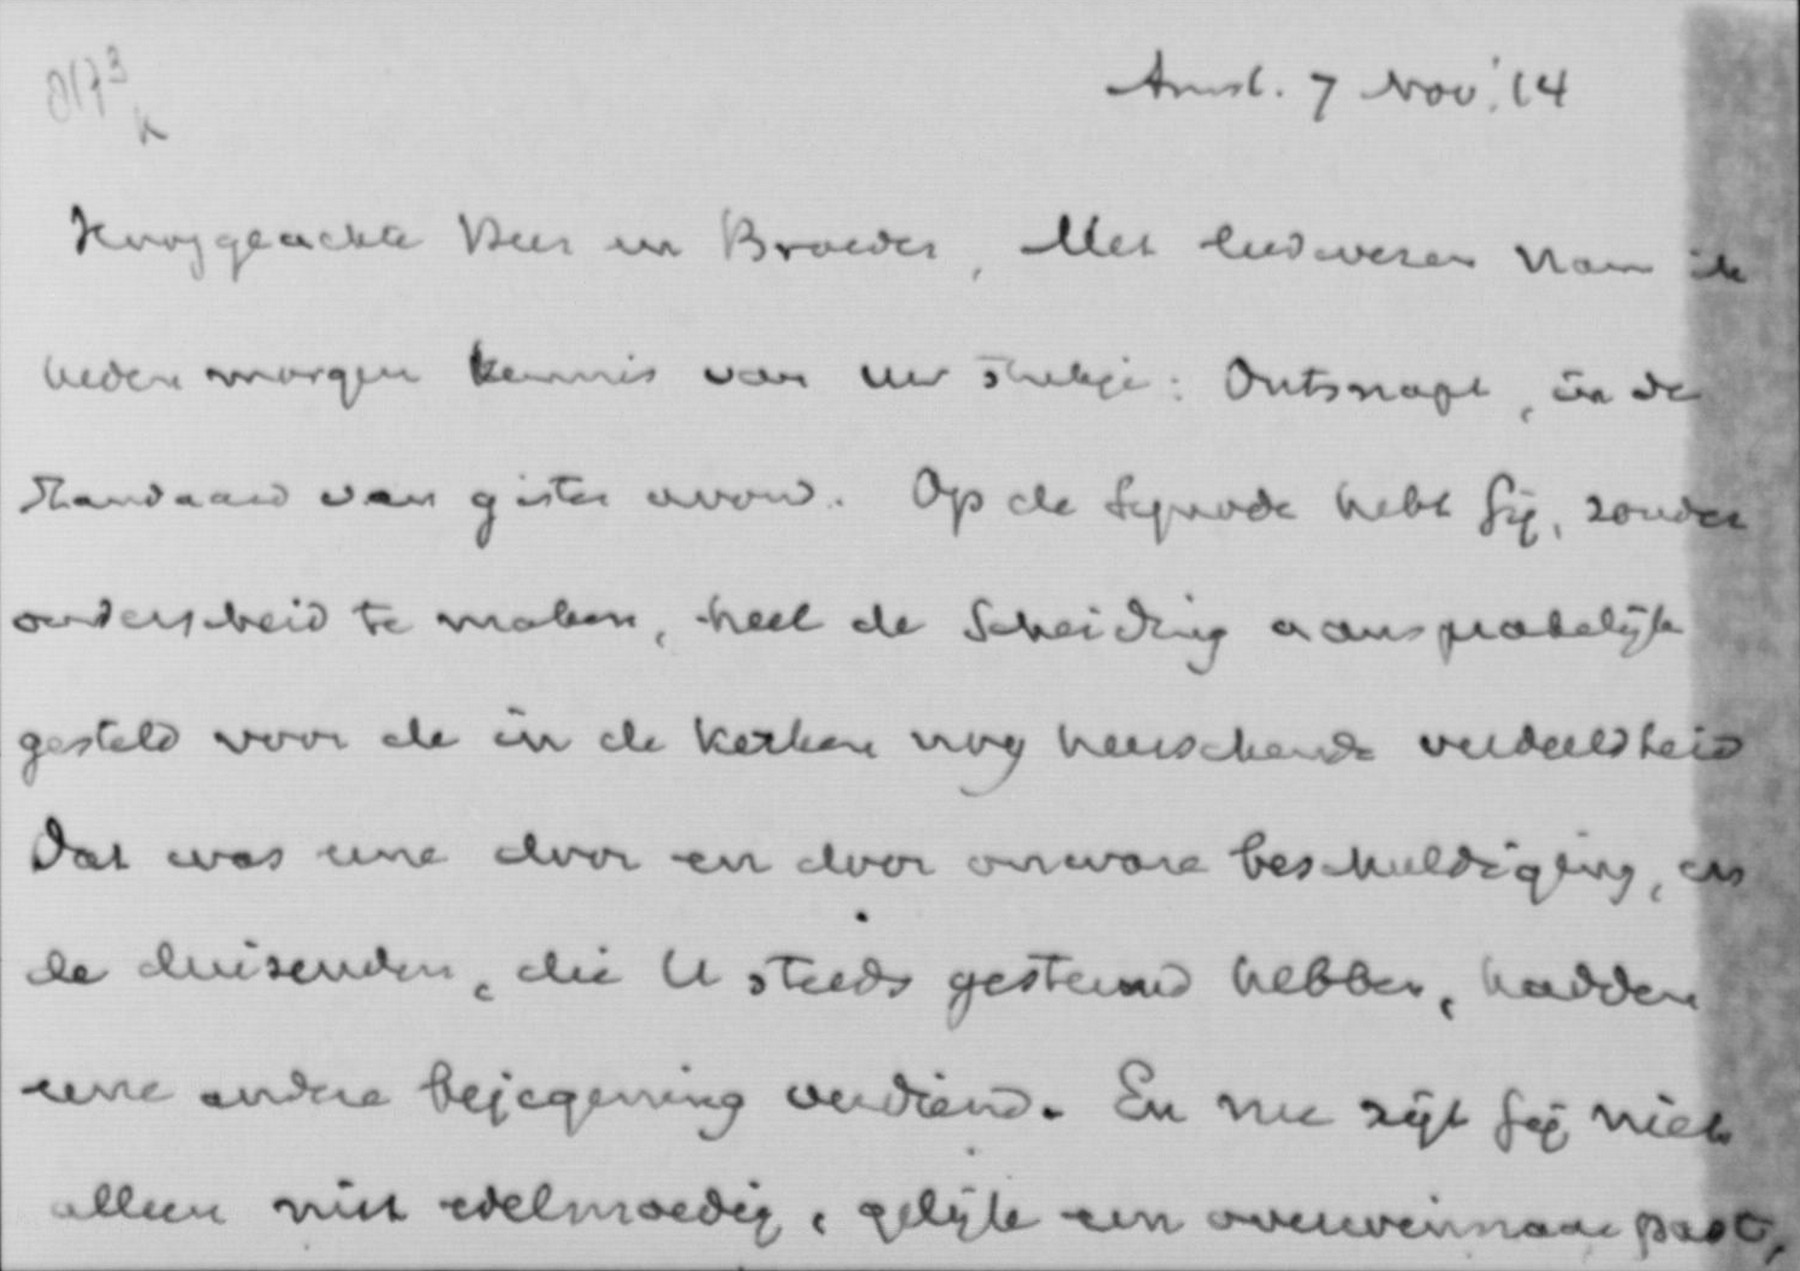 8173
k
Amst. 7 Nov. '14
Hooggeachte Heer en Broeder, Met leedwezen nam ik
heden morgen kennis van uw stukje: Ontsnapt, in de
Standaard van gister avond. Op de Synode hebt Gij, zonder
onderscheid te maken, heel de Scheiding aansprakelijk
gesteld voor de in de kerken nog heerschende verdeeldheid
Dat was eene door en door onware beschuldiging, en
de duizenden, die U steeds gesteund hebben, hadden
eene andere bejegening verdiend. En nu zijt Gij niet
alleen niet edelmoedig, gelijk een overwinnaar past,